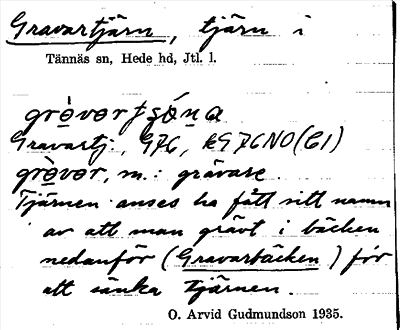 Gravartjärn, tjärn i
Tännäs sn, Hede hd, Jtl. l.
Gravartj., G76, kG76NO(C1)
m.: grävare
Tjärnen anses ha fått sitt namn
av att man grävt i bäcken
nedanför (Gravarbäcken) för
att sänka tjärnen.
O. Arvid Gudmundson 1935.